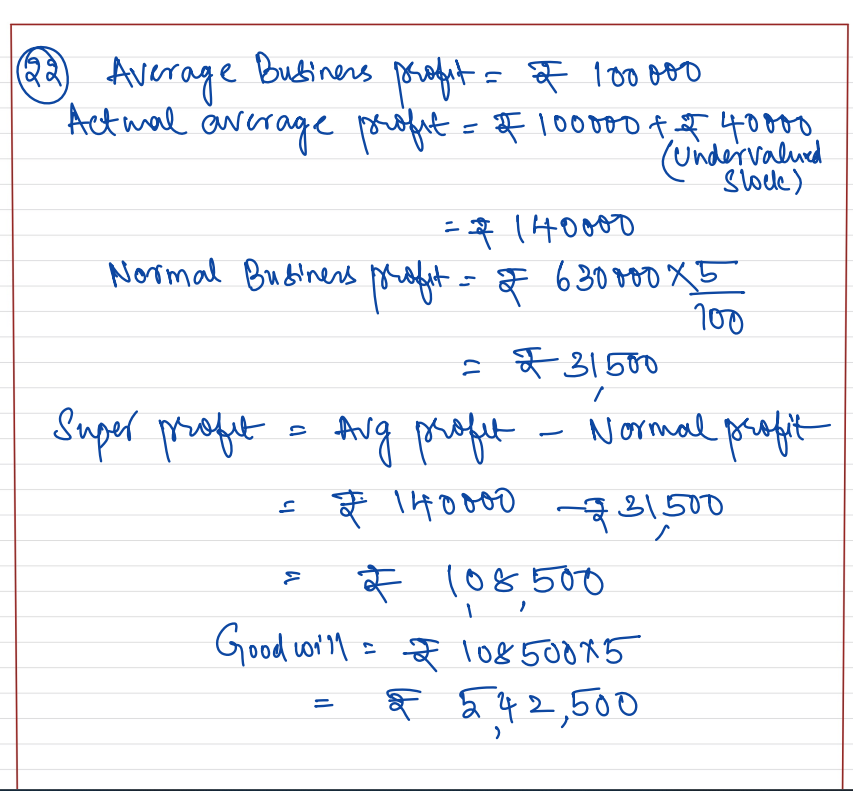 22 Average Business profit = ₹ 100000
Actual average profit = ₹ 100000 + ₹ 40000
(Undervalued
Stock)
= ₹ 140000
Normal Business profit = ₹ 630000 × 5/100
= ₹ 31,500
Super profit = Avg profit - Normal profit
= ₹ 140000 - ₹ 31,500
= ₹ 1,08,500
Goodwill = ₹ 108500×5
= ₹ 5,42,500